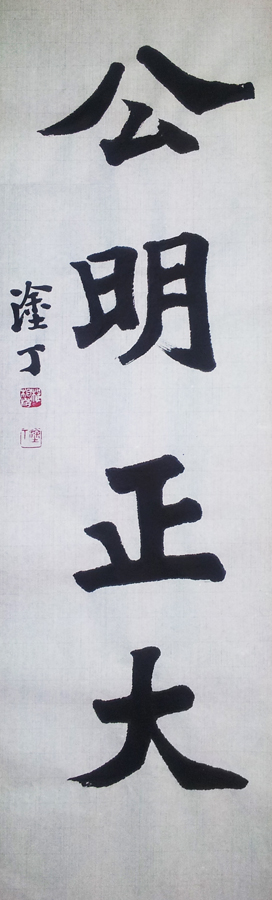 公明正大
塗丁